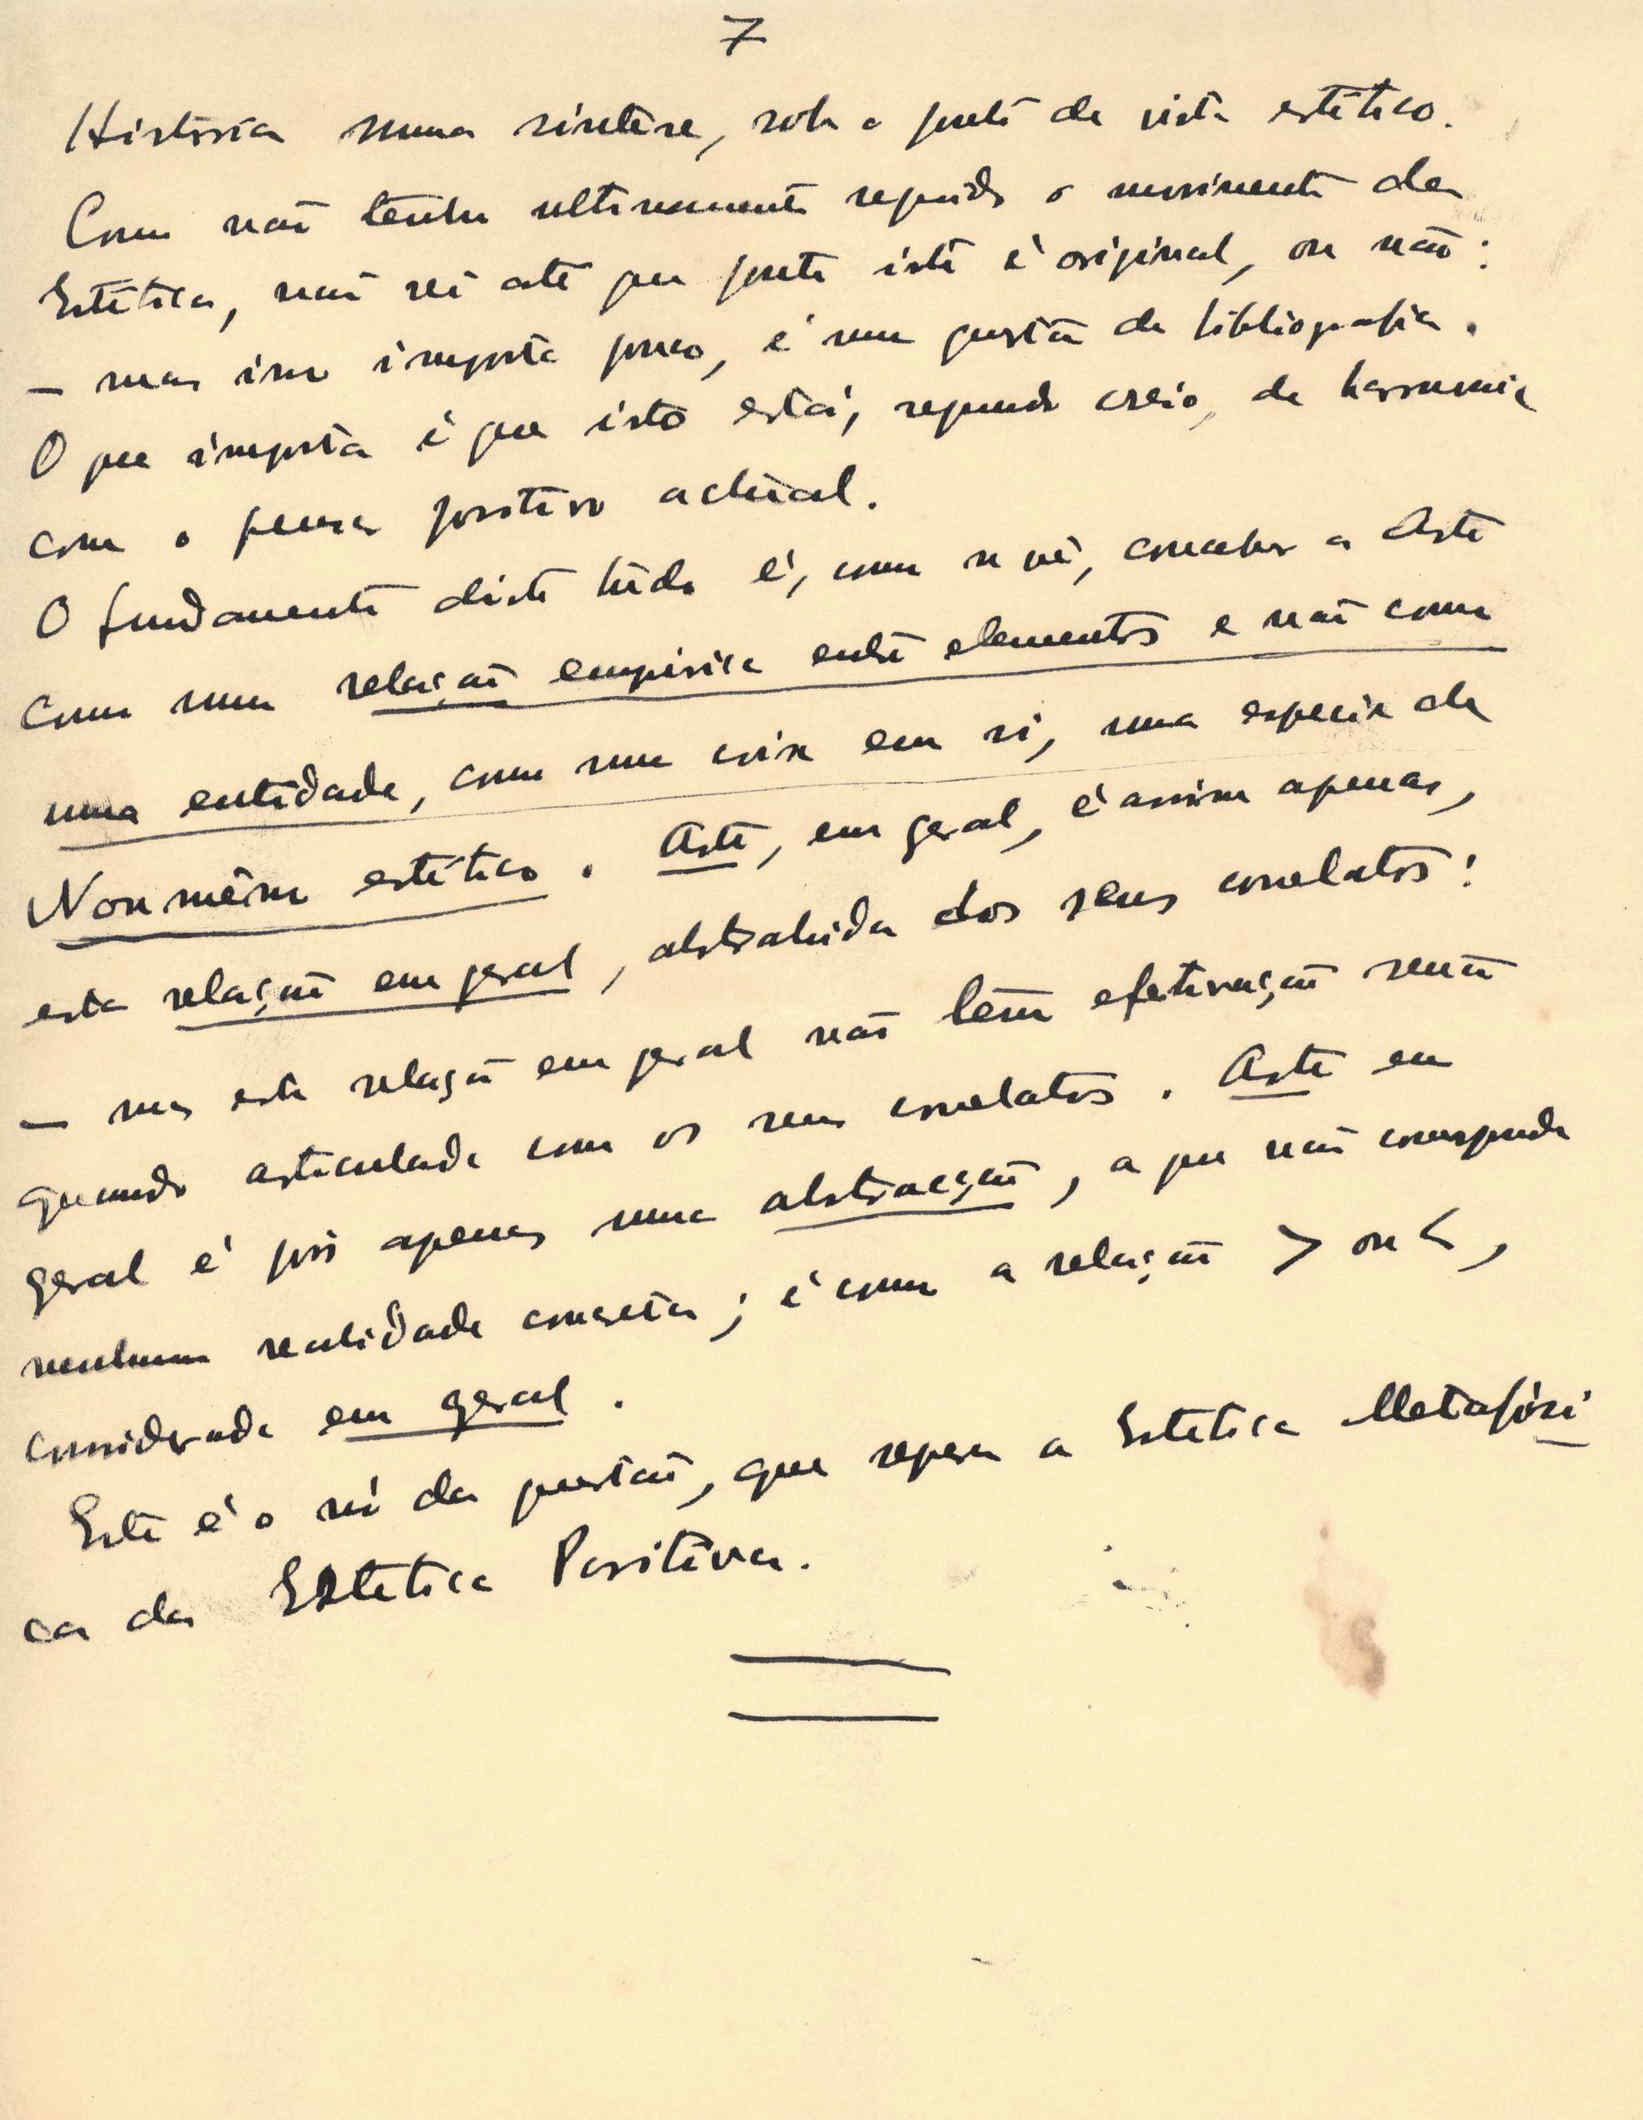 7
Historia numa sintese, sob o ponto de vista estético.
Como não tenho ultimamente seguido o movimento da
Estética, não sei até que ponto isto é original, ou não:
— mas isso importa pouco, é uma questão de bibliografia.
O que importa é que isto está, segundo creio, de harmonia
com o pensar positivo actual.
O fundamento disto tudo é, como se vê, conceber a Arte
como uma relação empirica entre elementos e não como
uma entidade, como uma coisa em si, uma especie de
Noumeno estético. Arte, em geral, é assim apenas,
esta relação em geral, abstrahida dos seus correlatos:
— mas esta relação em geral não tem efectivação senão
quando articulada com os seus correlatos. Arte em
geral é pois apenas uma abstracção, a que não corresponde
nenhuma realidade concreta; é como a relação > ou <,
considerada em geral.
Este é o nó da questão, que separa a Estetica Metafísi
ca da Estetica Positiva.